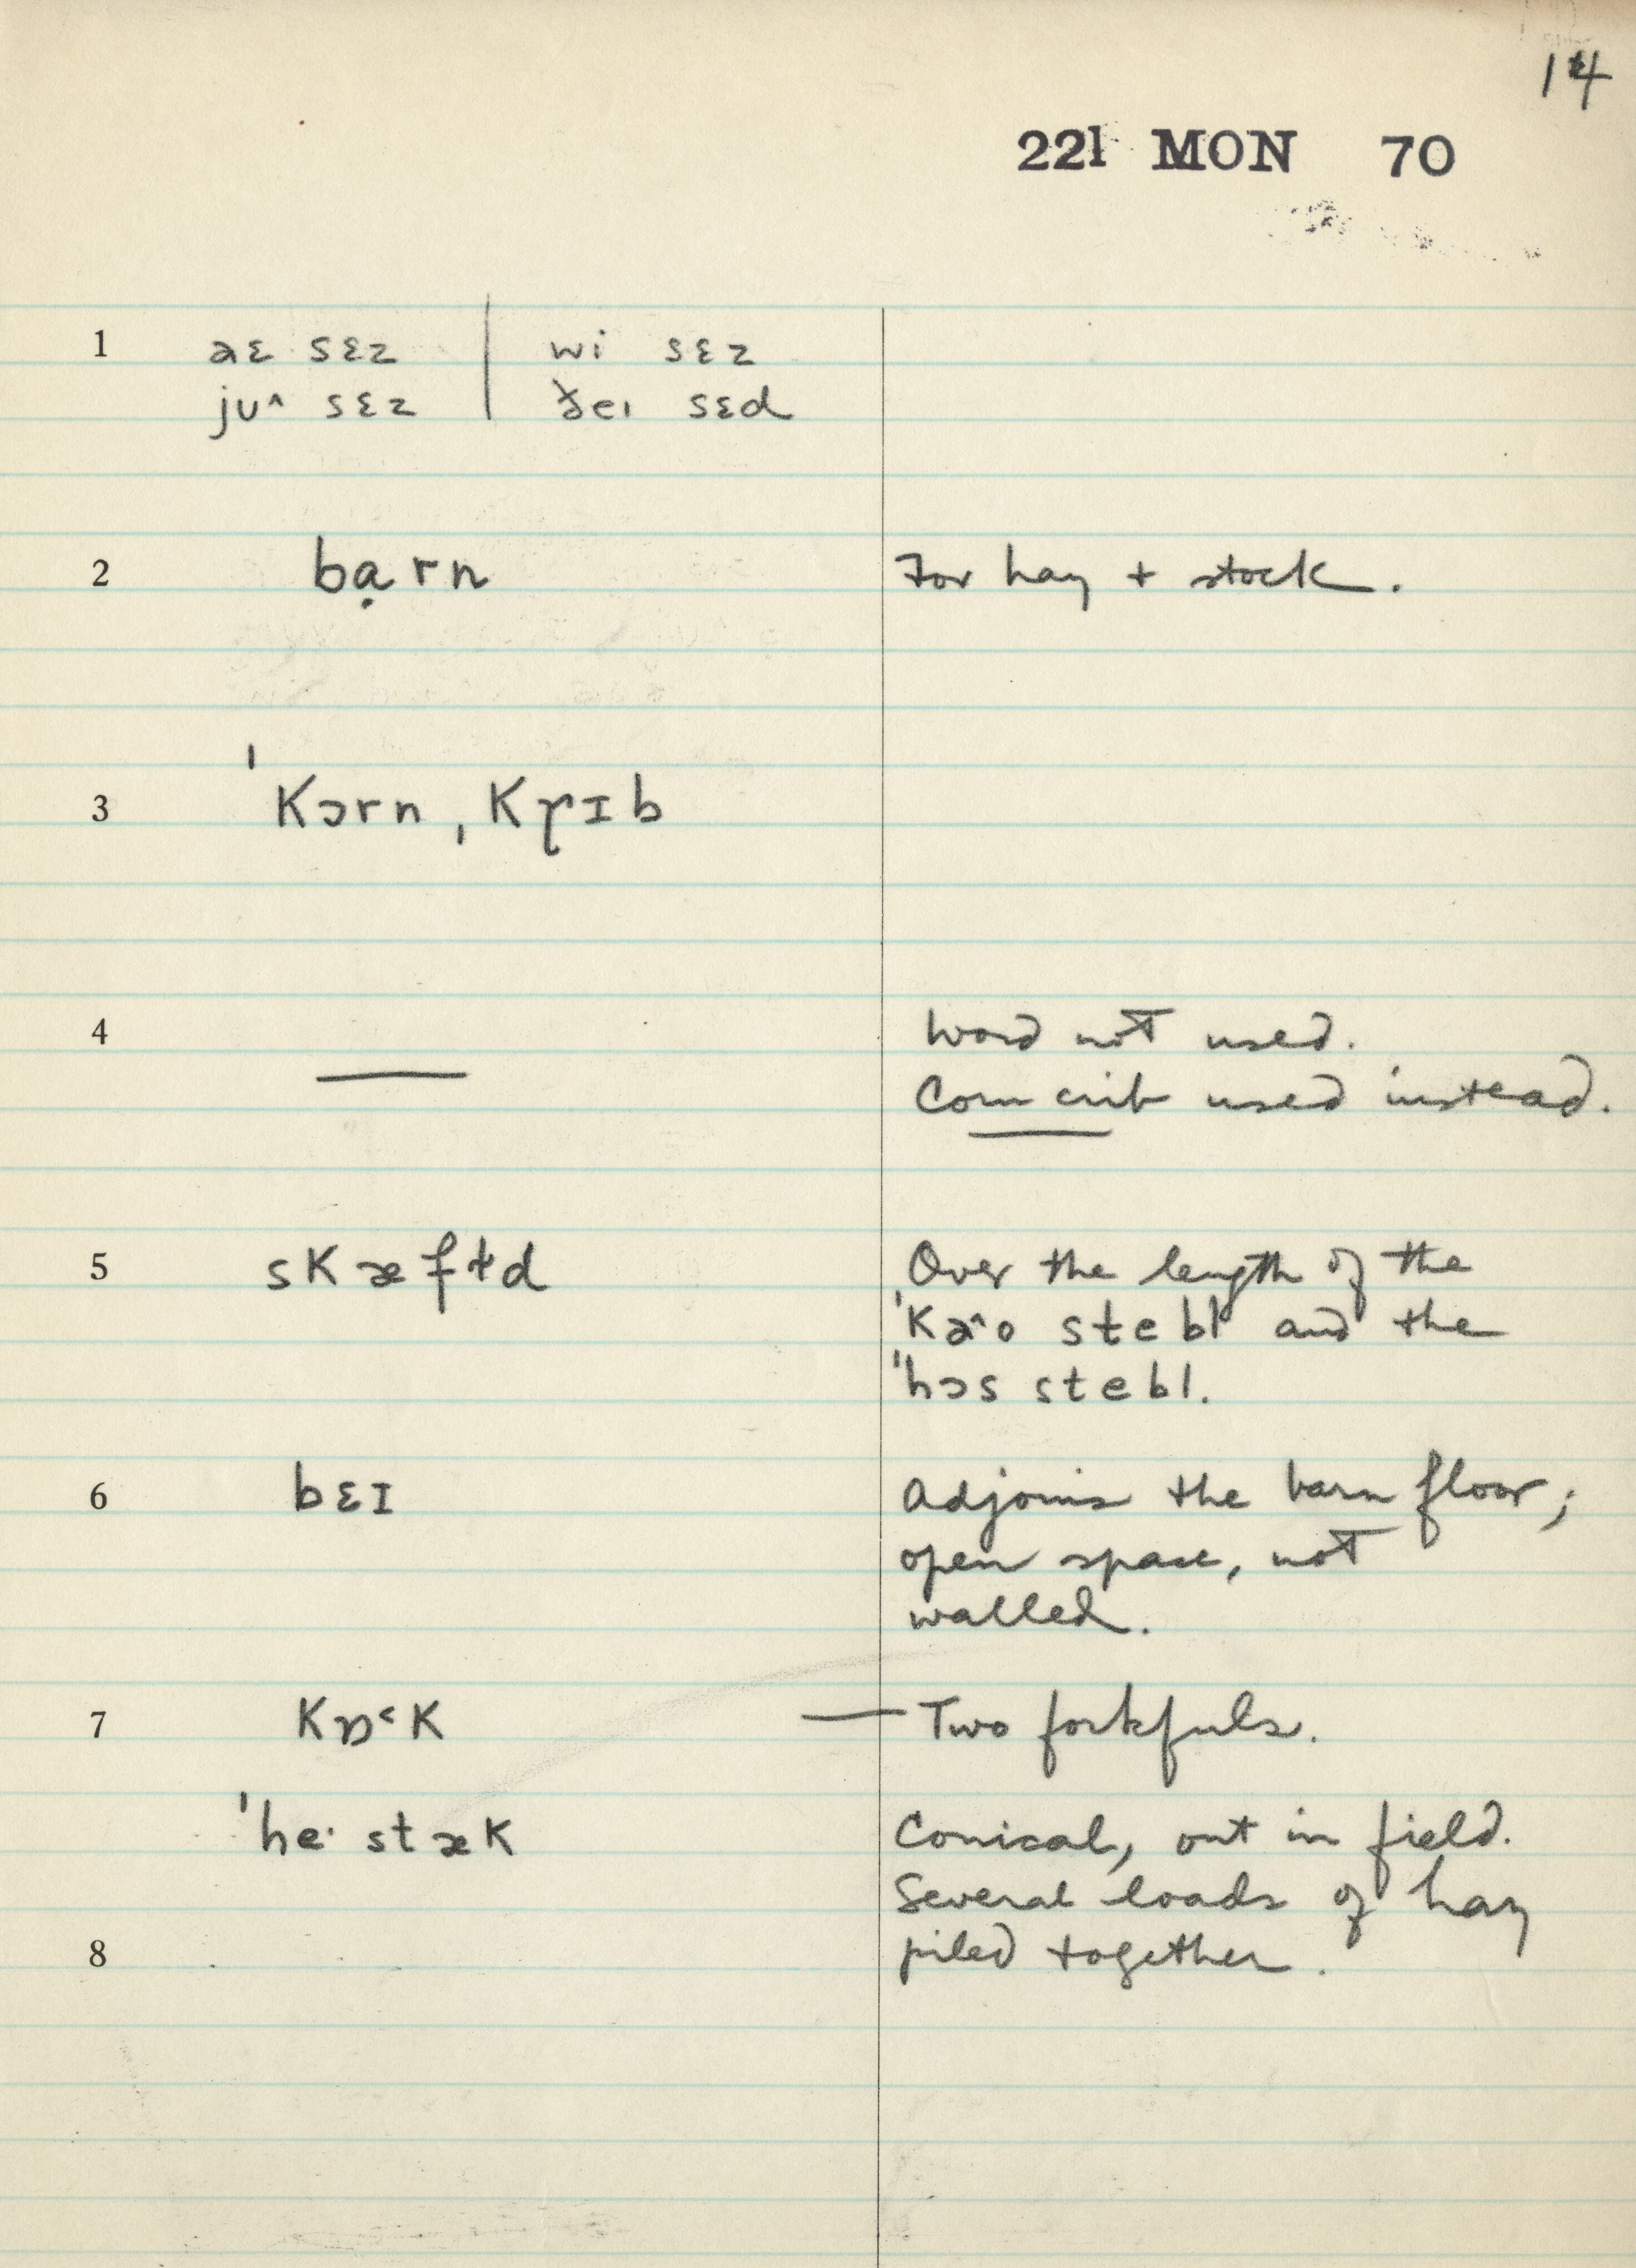 14
221 MON 70
1 aɛ sɛz | wi sɛz
juˆ sɛz | ðeɪ sɛd
2 bạrn For hay + stock.
3 ˈkɔrn ˌkɽɪb
4 —— Word not used.
Corn crib used instead.
5 skæfɫd Over the length of the
ˈkaˆo stebl and the
ˈhɔs stebl.
6 bɛɪ Adjoins the barn floor;
open space, not
walled.
7 kɒ˂k — Two forkfuls.
ˈhe· stæk Conical, out in field.
Several loads of hay
8 piled together.